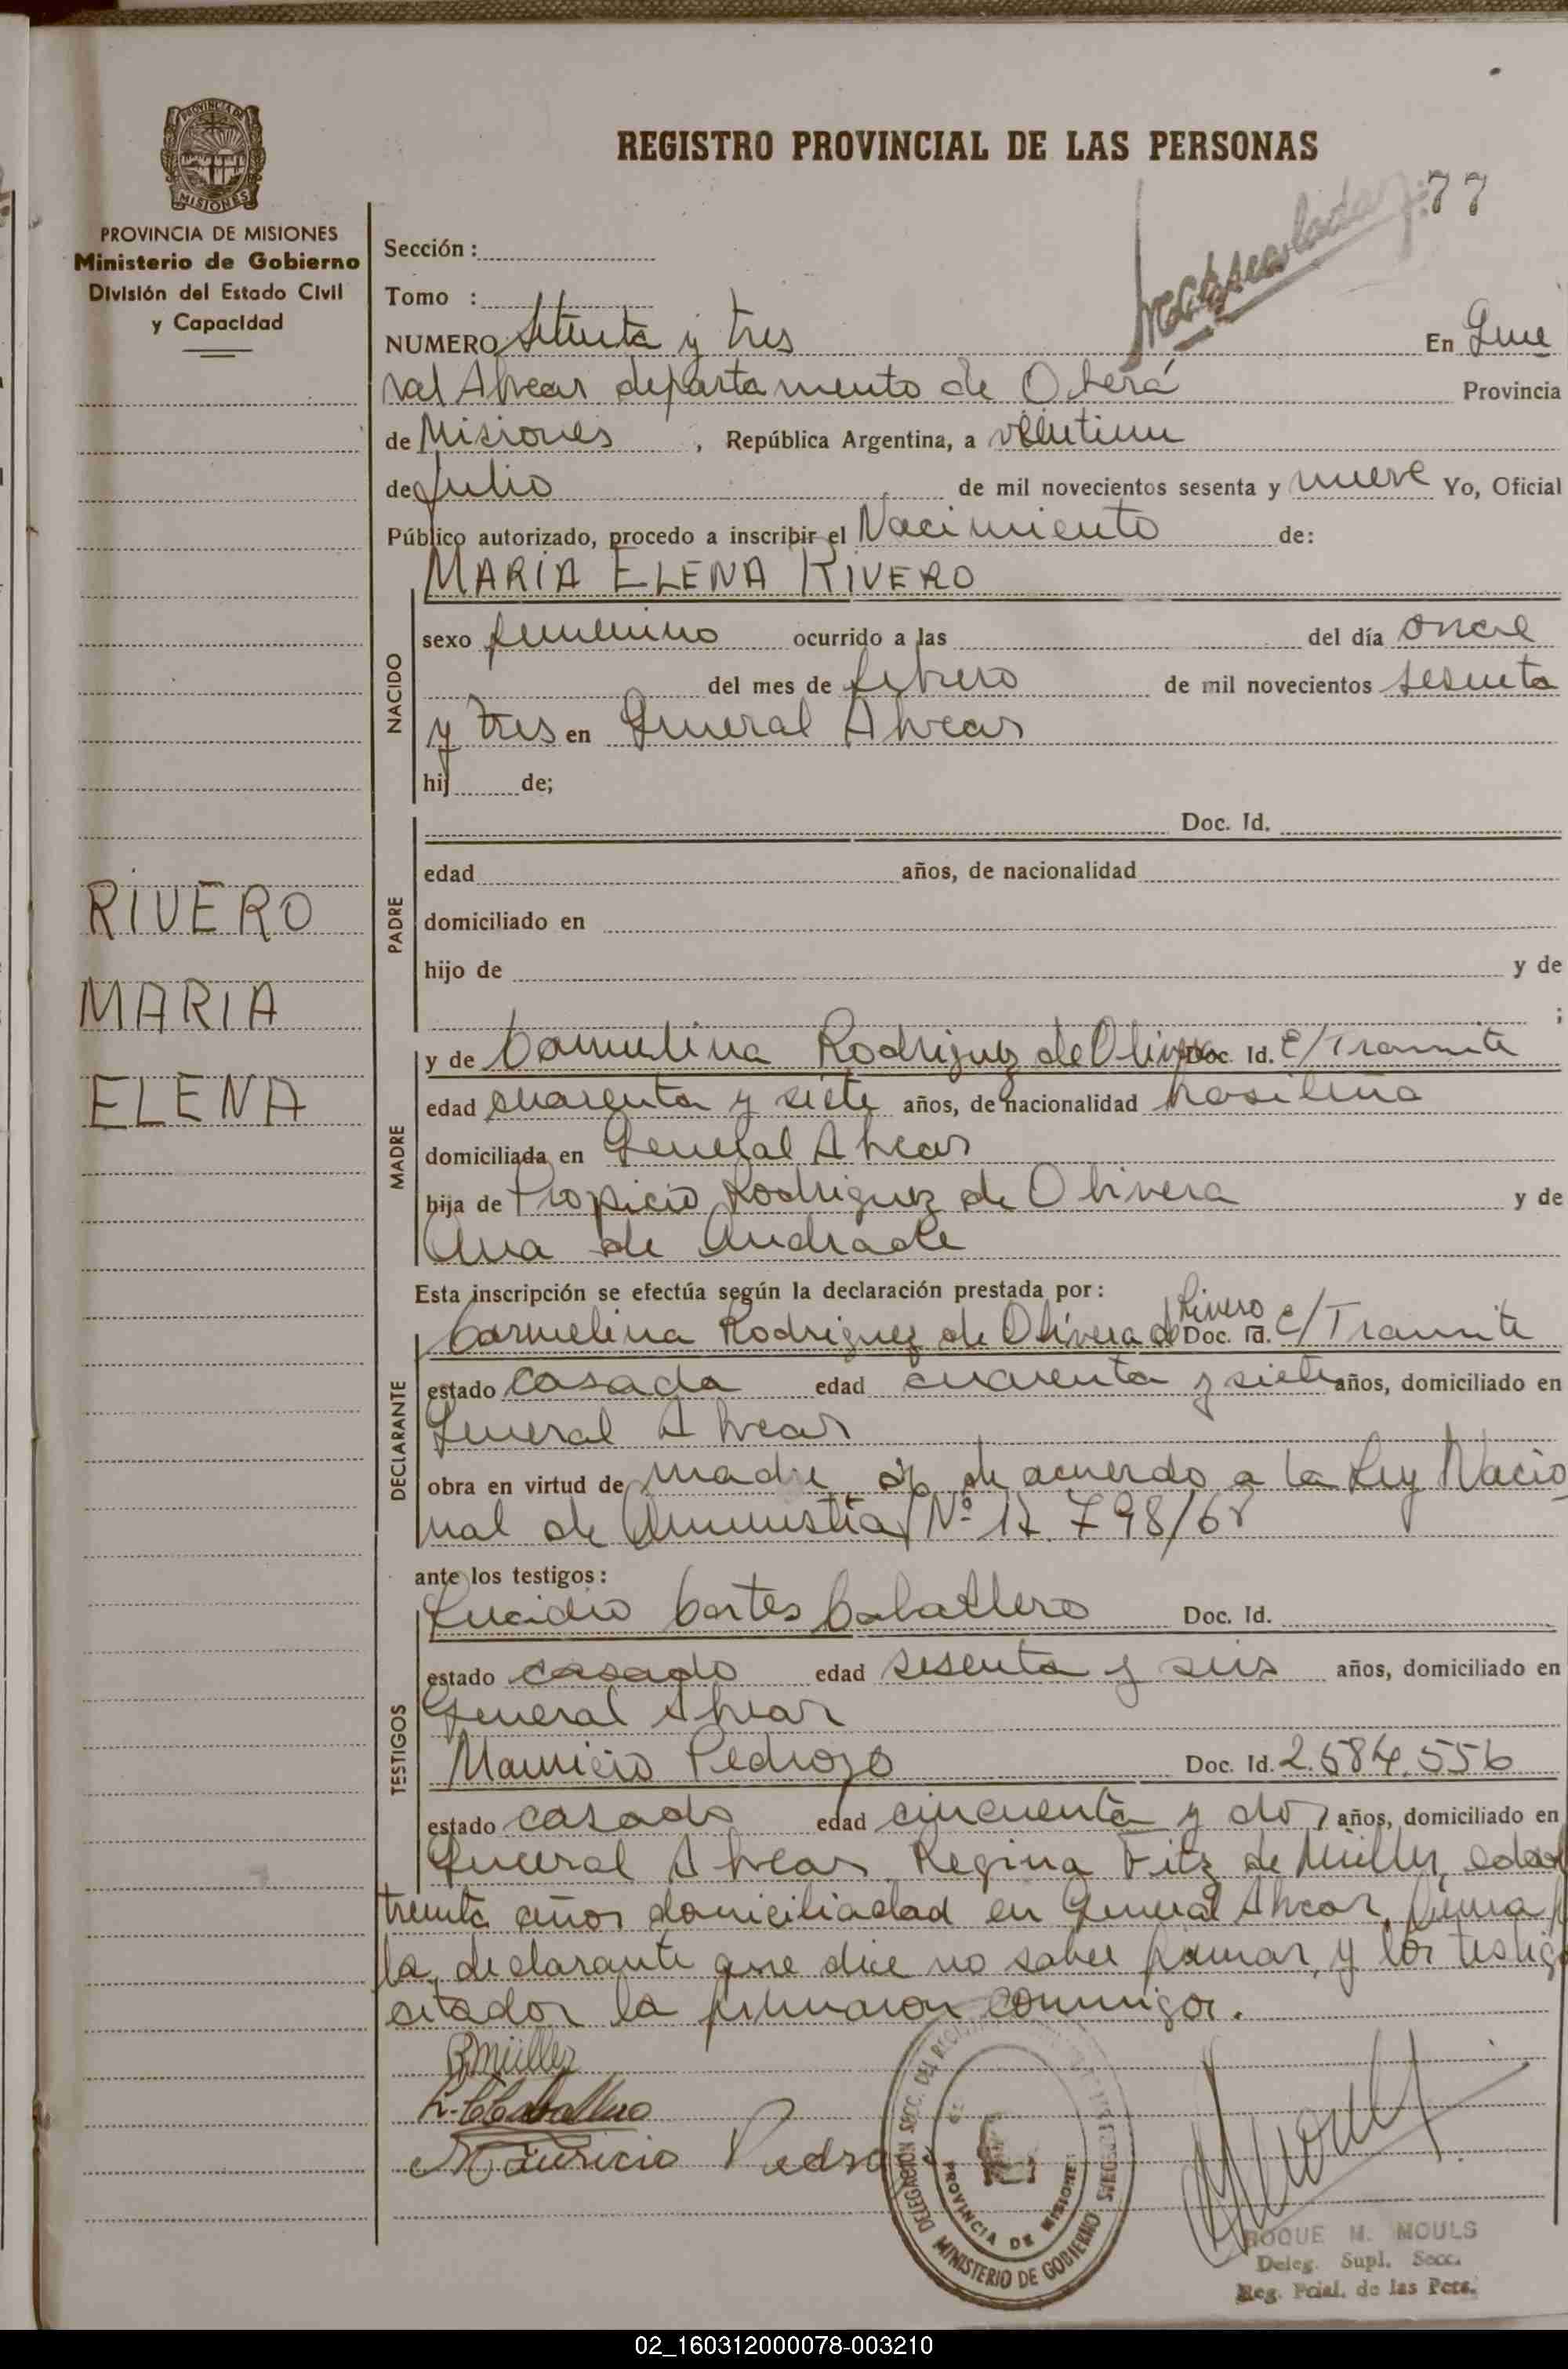 REGISTRO PROVINCIAL DE LAS PERSONAS
77
PROVINCIA DE
MISIONES
PROVINCIA DE MISIONES
Ministerio de Gobierno
División del Estado Civil
y Capacidad
Sección :
Tomo :
NUMERO Setenta y tres En Gene
ral Alvear departamento de Oberá Provincia
de Misiones , República Argentina, a veintiun
de Julio de mil novecientos sesenta y nueve Yo, Oficial
Público autorizado, procedo a inscribir el Nacimiento de:
MARIA ELENA RIVERO
NACIDO
sexo femenino ocurrido a las del día once
del mes de febrero de mil novecientos sesenta
y tres en General Alvear
hij de;
PADRE
Doc. Id.
edad años, de nacionalidad
domiciliado en
hijo de y de
;
RIVERO
MARIA
ELENA
MADRE
y de Carmelina Rodriguez de Olivera Doc. Id. E/Tramite
edad cuarenta y siete años, de nacionalidad brasileña
domiciliada en General Alvear
hija de Propicio Rodriguez de Olivera y de
Ana de Andrade
Esta inscripción se efectúa según la declaración prestada por:
DECLARANTE
Carmelina Rodriguez de Olivera d Rivero Doc. Id. E/Tramite
estado casada edad cuarenta y siete años, domiciliado en
General Alvear
obra en virtud de madre de acuerdo a la Ley Nacio
nal de Amnistia Nº 17.798/68
ante los testigos:
TESTIGOS
Lucidio Cortes Caballero Doc. Id.
estado casado edad sesenta y seis años, domiciliado en
General Alvear
Mauricio Pedrozo Doc. Id. 2.684.556
estado casado edad cincuenta y dos años, domiciliado en
General Alvear Regina Fitz de Müller, edad
treinta años domiciliadad en General Alvear, firma p
la declarante que dice no saber firmar, y los testigo
citados la firmaron conmigo.
R. Müller
L. C. Caballero
Mauricio Pedrozo
DELEGACIÓN SECC. DEL
MINISTERIO DE GOBIERNO
PROVINCIA DE MISIONES
ROQUE M. MOULS
Deleg. Supl. Secc.
Reg. Pcial. de las Pers.
02_160312000078-003210